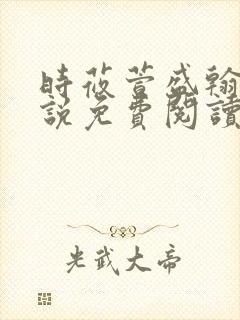 時莜萱盛翰
說免費閱讀
光武大帝